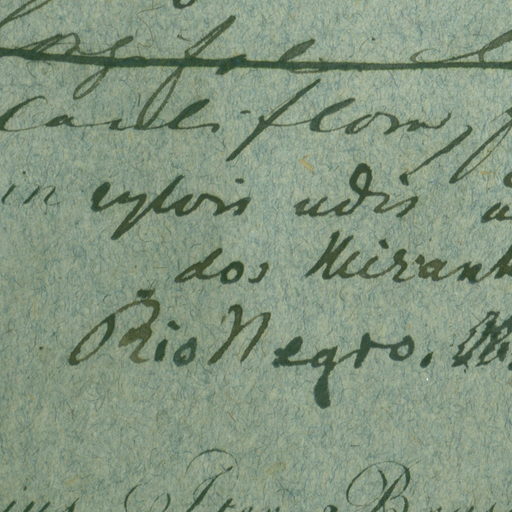 Cauliflora,
in sylvis udis
dos Miranh
Rio Negro.
Iter Bras